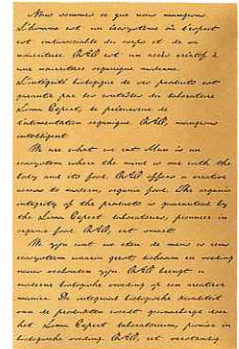 Nous sommes ce que nous mangeons.
L'homme est un écosystème où l'esprit
est indissociable du corps et de sa
nourriture. est un accès créatif à
une nourriture organique moderne.
L'intégrité biologique de ses produits est
garantie par les contrôles du laboratoire
Lima Expert, le pionnier de
l'alimentation organique. mangeons
intelligent
We are what we eat. Man is an
ecosystem where the mind is one with the
body and its food. offers a creative
access to modern, organic food. The organic
integrity of the products is guaranteed by
the Lima Expert laboratories, pioneer in
organic food. eat smart
We zijn wat we eten. de mens is een
ecosysteem waarin geest, lichaam en voeding
nauw verbonden zijn. brengt u
moderne biologische voeding op een creatieve
manier. De integraal biologische kwaliteit
van de produkten wordt gewaarborgd door
het Lima Expert laboratorium, pionier in
biologische voeding. eet verstandig